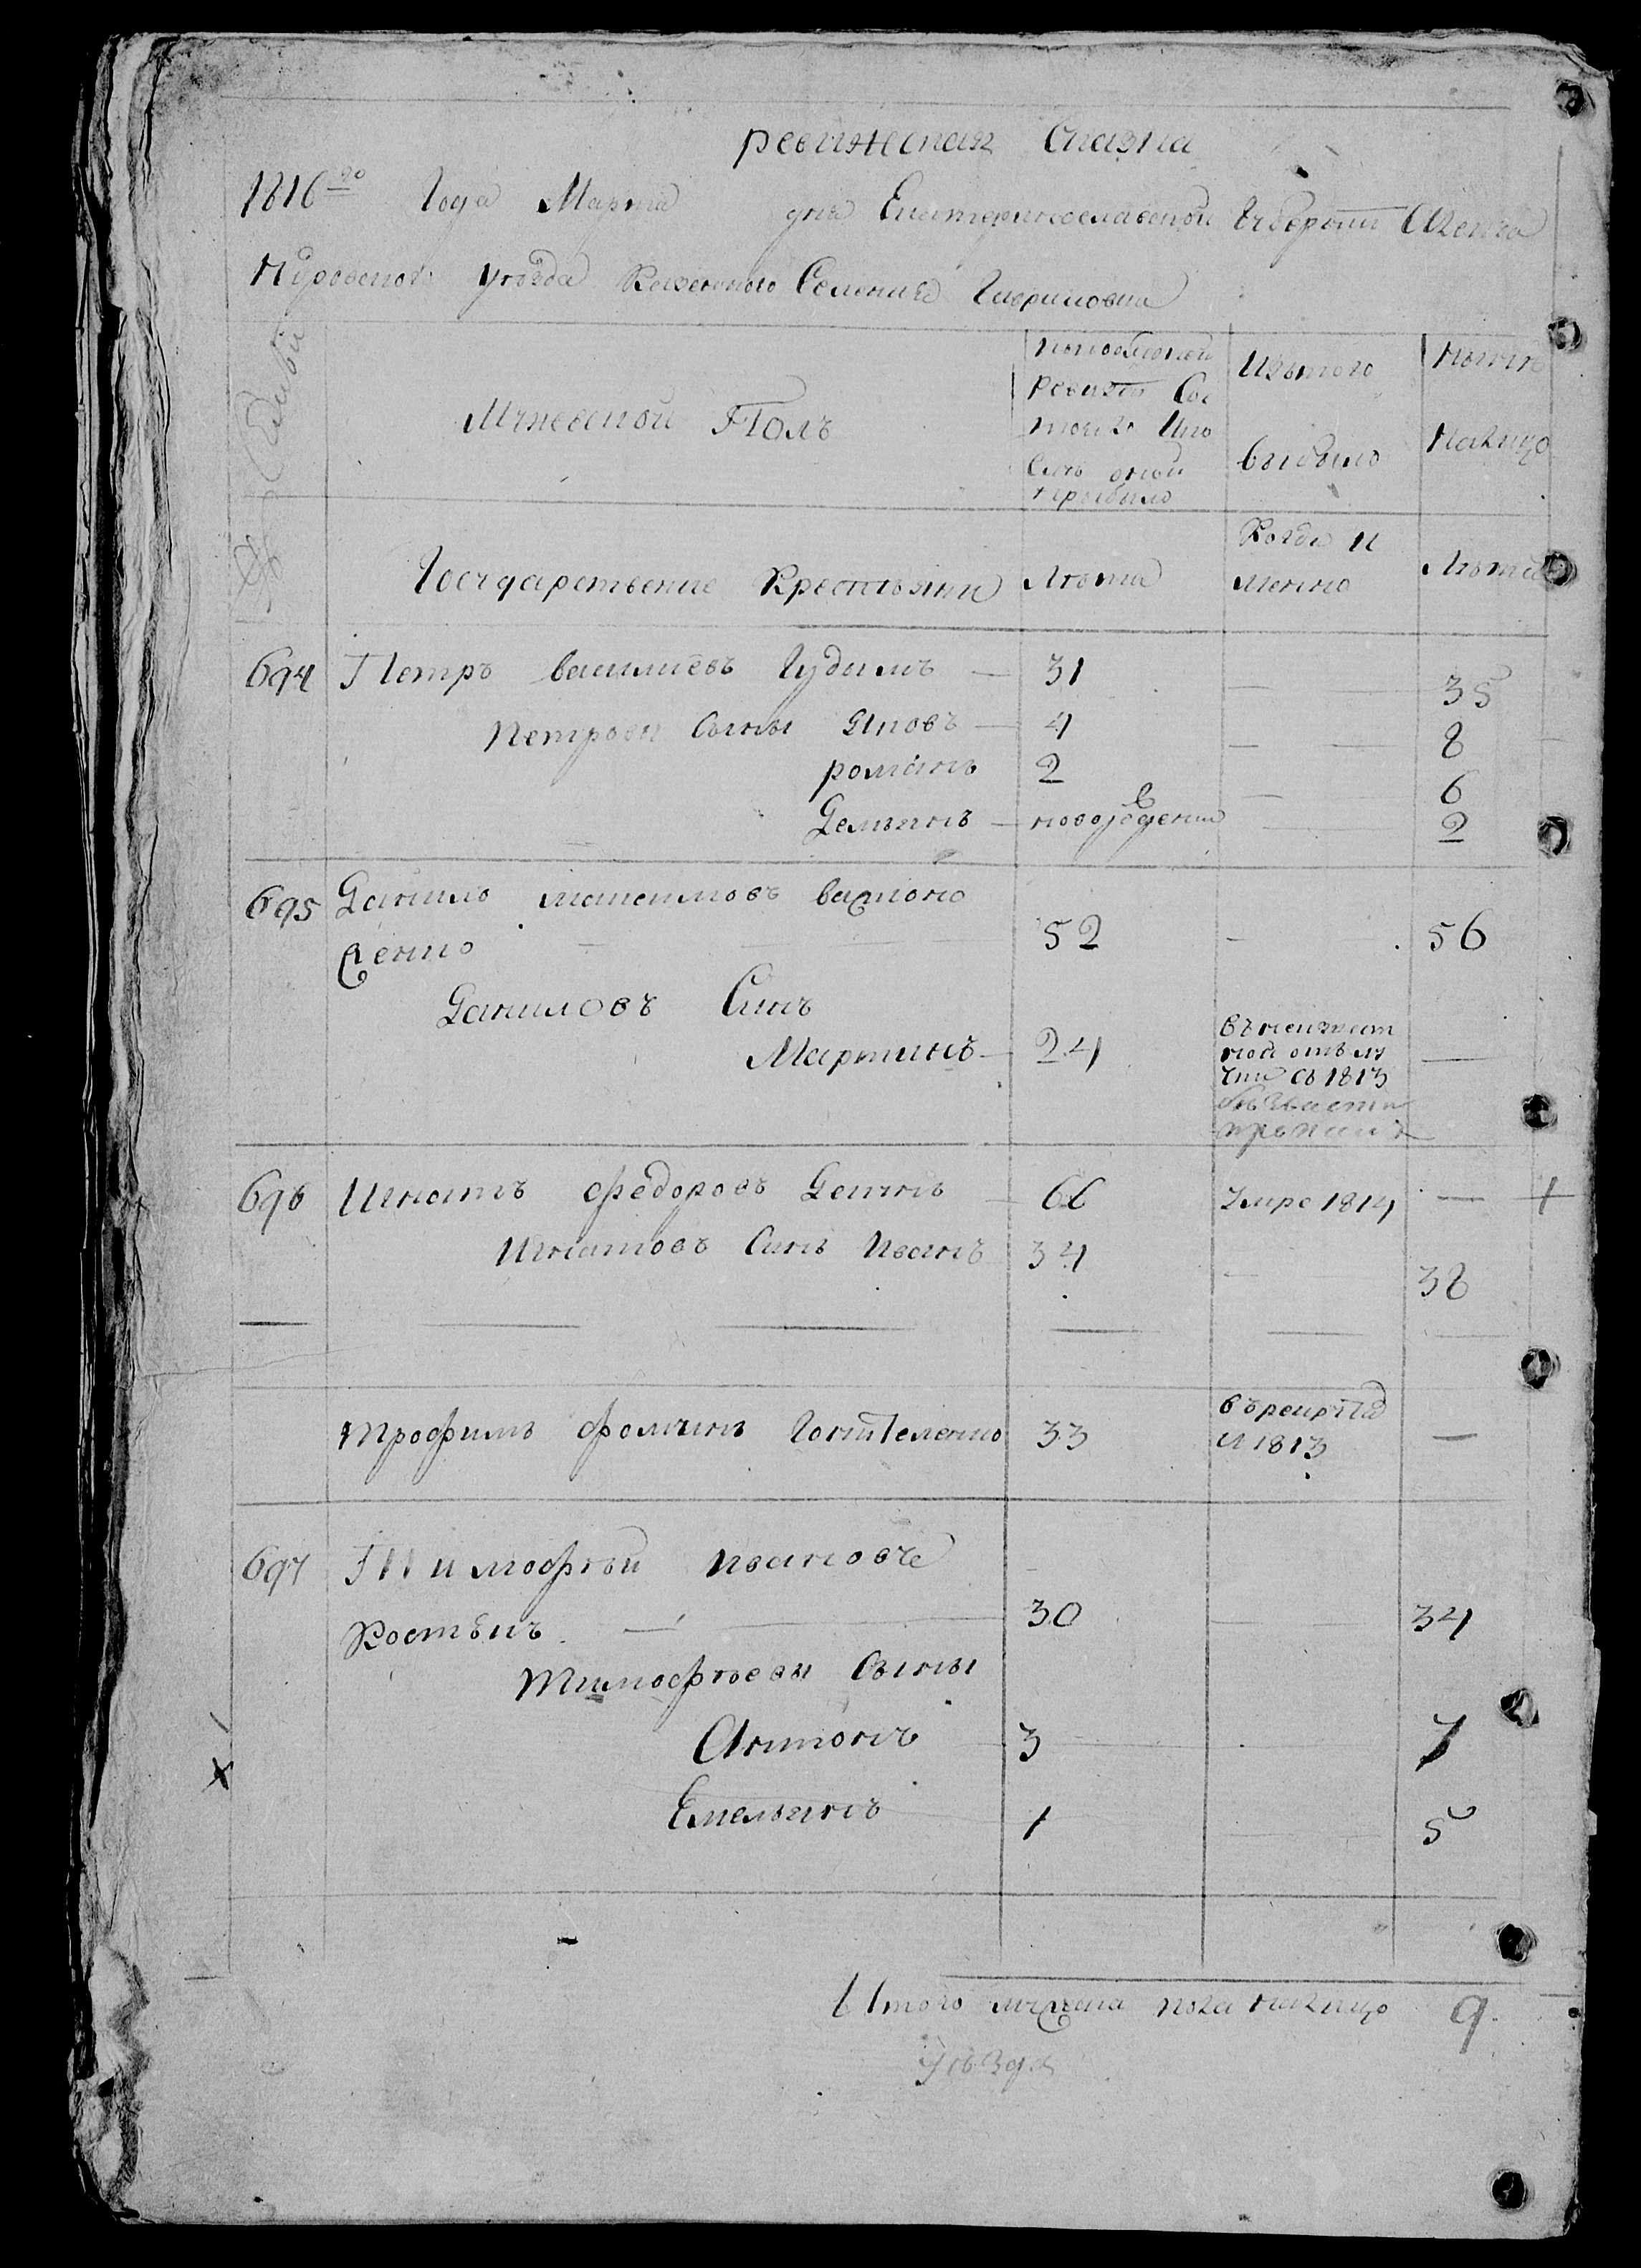 ревижская Сказка
1816го Года Марта дня Екатеринославской Губернии Алекса
ндровского уезда Казенного Селения Гавриловки
Мужеской Полъ
По последней
Ревизии Со
стояло и по
слъ оной
прибыло
Изътого
выбыло
Ныне
Налицо
Государственые Крестьяни
Лъта
Когда И
менно
Лъта
694 Петръ василиевъ Гудымъ — 31 — 35
Петровы Сыны Яковъ — 4 — 8
романъ 2 — 6
Демьянъ — новорожденъ — 2
695 Данило максимовъ
ченко — 52 — 56
Даниловъ Синъ
Мартинъ — 24 —
1813
696 Игнатъ федоровъ — 66 Умре 1814 —
Игнатовъ Синъ Иванъ 34 — 38
трофимъ фоминъ 33 въ рекрута
И 1813 —
697 Тимофъй Ивановъ
30 — 34
Тимофъевы Сыны
Антонъ 3 — 7
Емельянъ 1 — 5
Итого мужеска пола налицо 9